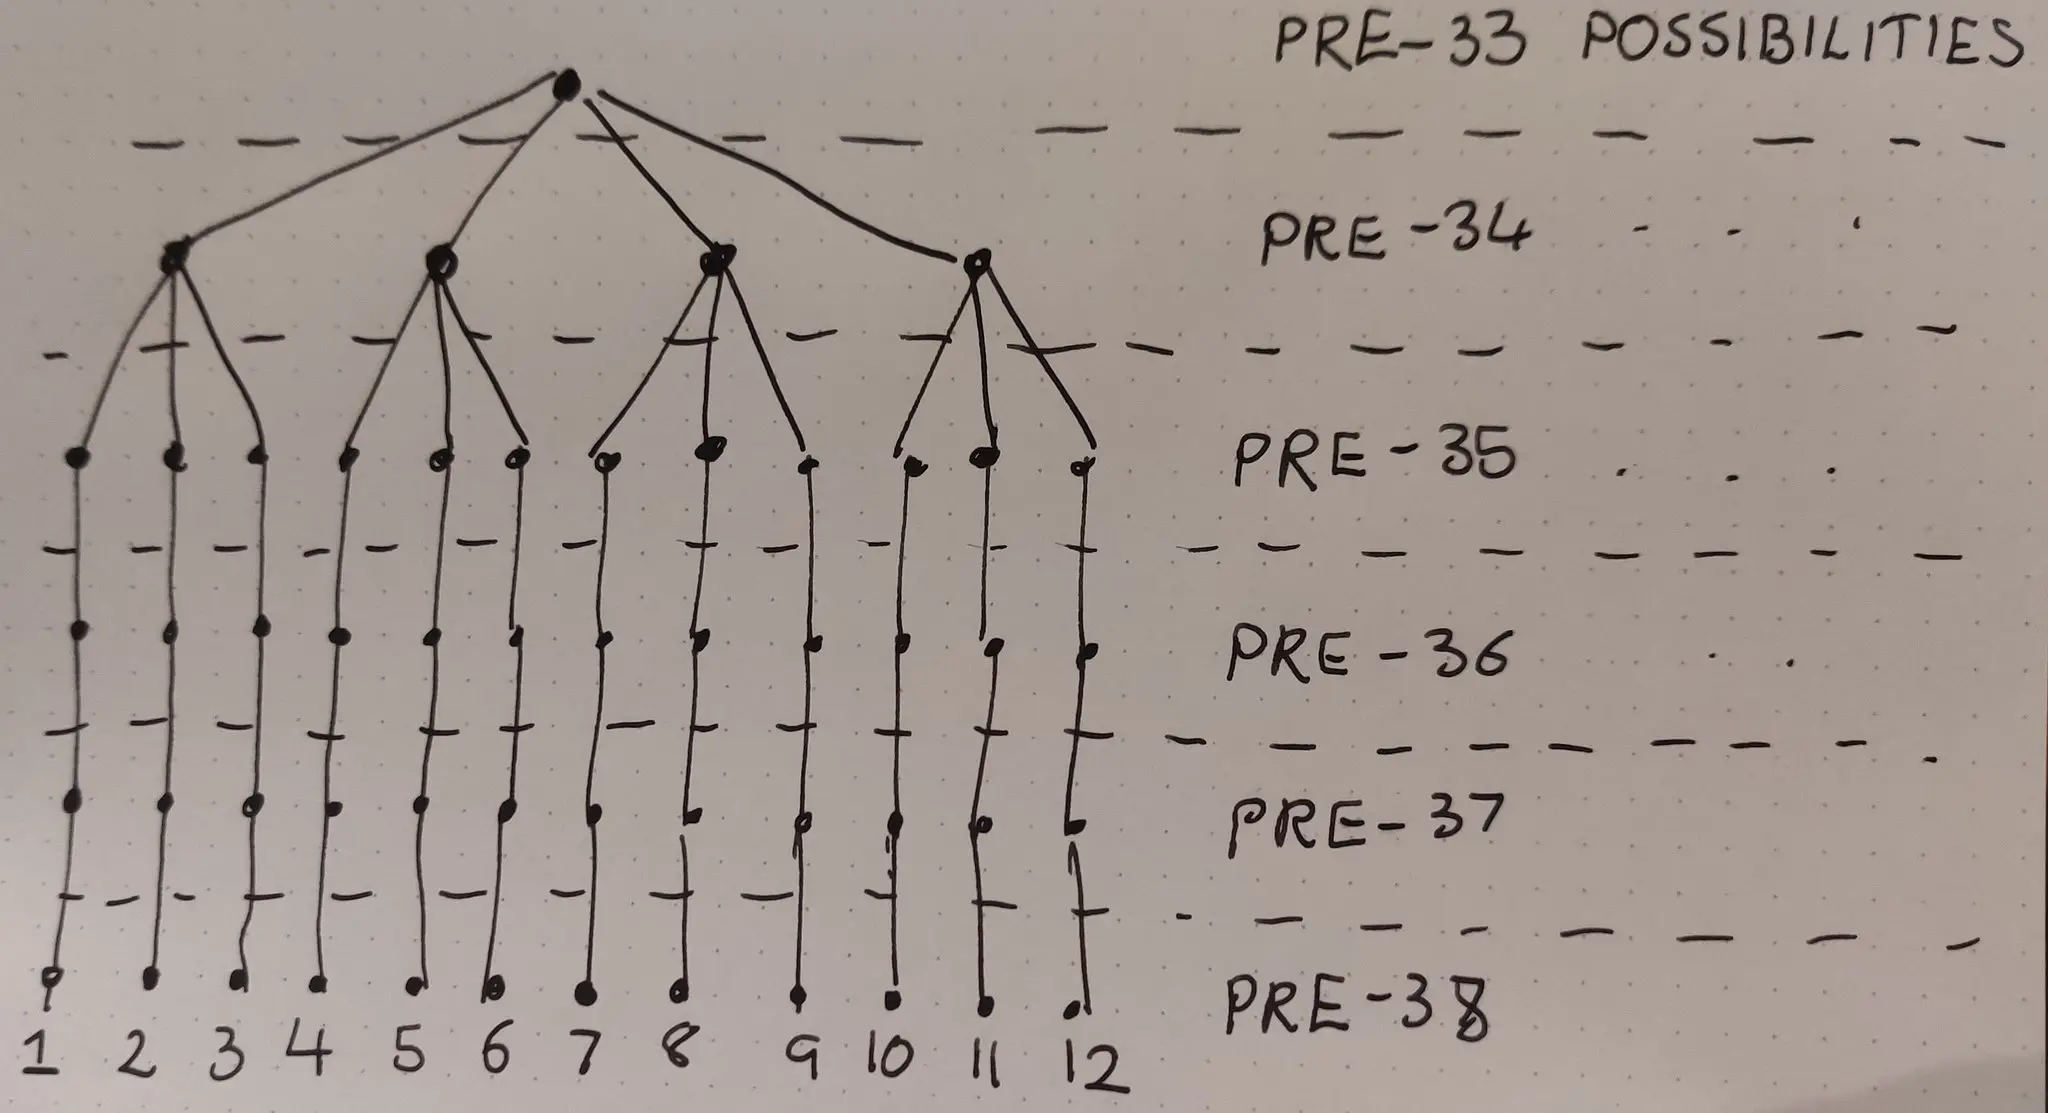 PRE-33 POSSIBILITIES
PRE-34
PRE-35
PRE-36
PRE-37
PRE-38
1 2 3 4 5 6 7 8 9 10 11 12